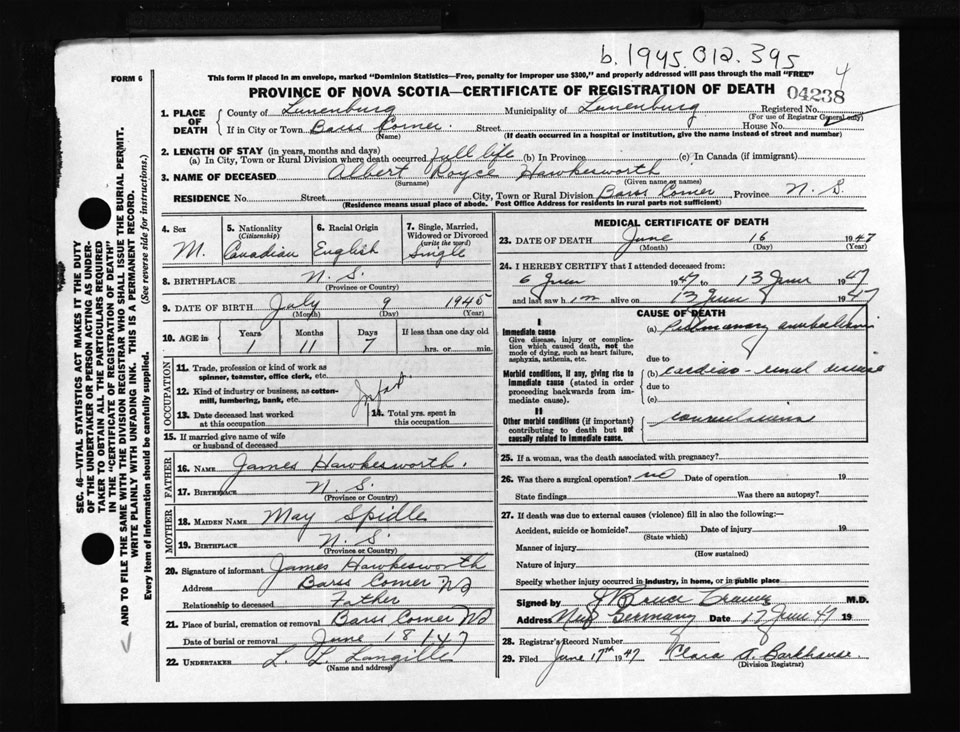 b. 1945.012.395
FORM 6
This form if placed in an envelope, marked "Dominion Statistics—Free, penalty for improper use $300," and properly addressed will pass through the mail "FREE"
4
PROVINCE OF NOVA SCOTIA—CERTIFICATE OF REGISTRATION OF DEATH
04238
1. PLACE OF DEATH
County of Lunenburg Municipality of Lunenburg Registered No.
(For use of Registrar General only)
If in City or Town Barss Corner. Street House No.
(Name) (If death occurred in a hospital or institution, give the name instead of street and number)
2. LENGTH OF STAY (in years, months and days)
(a) In City, Town or Rural Division where death occurred full life (b) In Province (c) In Canada (if immigrant)
3. NAME OF DECEASED Albert Royce Hawkesworth
(Surname) (Given name or names)
RESIDENCE No. Street City, Town or Rural Division Barss Corner Province N. S.
(Residence means usual place of abode. Post Office Address for residents in rural parts not sufficient)
4. Sex M.
5. Nationality (Citizenship) Canadian
6. Racial Origin English
7. Single, Married, Widowed or Divorced (write the word) Single
8. BIRTHPLACE N. S.
(Province or Country)
9. DATE OF BIRTH July 9 1945
(Month) (Day) (Year)
10. AGE in Years Months Days If less than one day old
1 11 7 hrs. or min.
OCCUPATION
11. Trade, profession or kind of work as spinner, teamster, office clerk, etc.
12. Kind of industry or business, as cotton-mill, lumbering, bank, etc.
Infant
13. Date deceased last worked at this occupation
14. Total yrs. spent in this occupation
15. If married give name of wife or husband of deceased
FATHER
16. NAME James Hawkesworth.
17. BIRTHPLACE N. S.
(Province or Country)
MOTHER
18. MAIDEN NAME May Spidle
19. BIRTHPLACE N. S.
(Province or Country)
20. Signature of informant James Hawkesworth
Address Barss Corner NS
Relationship to deceased Father
21. Place of burial, cremation or removal Barss Corner NS
Date of burial or removal June 18/47
22. UNDERTAKER L. L. Langille
(Name and address)
MEDICAL CERTIFICATE OF DEATH
23. DATE OF DEATH June 16 1947
(Month) (Day) (Year)
24. I HEREBY CERTIFY that I attended deceased from:
6 June 1947 to 13 June 47
and last saw him alive on 13 June 1947
CAUSE OF DEATH
I
Immediate cause
Give disease, injury or complication which caused death, not the mode of dying, such as heart failure, asphyxia, asthenia, etc.
(a) Pulmonary embolism
due to
Morbid conditions, if any, giving rise to immediate cause (stated in order proceeding backwards from immediate cause).
(b) cardiac-renal disease
due to
(c)
II
Other morbid conditions (if important) contributing to death but not causally related to immediate cause.
convulsions
25. If a woman, was the death associated with pregnancy?
26. Was there a surgical operation? no Date of operation 19
State findings Was there an autopsy?
27. If death was due to external causes (violence) fill in also the following:—
Accident, suicide or homicide? Date of injury 19
(State which)
Manner of injury
(How sustained)
Nature of injury
Specify whether injury occurred in industry, in home, or in public place
Signed by J Bruce M.D.
Address New Germany Date 17 June 47 19
28. Registrar's Record Number
29. Filed June 17th 1947 Clara A. Barkhouse.
(Division Registrar)
SEC. 46—VITAL STATISTICS ACT MAKES IT THE DUTY
OF THE UNDERTAKER OR PERSON ACTING AS UNDER-
TAKER TO OBTAIN ALL THE PARTICULARS REQUIRED
IN THE "CERTIFICATE OF REGISTRATION OF DEATH"
AND TO FILE THE SAME WITH THE DIVISION REGISTRAR WHO SHALL ISSUE THE BURIAL PERMIT.
WRITE PLAINLY WITH UNFADING INK. THIS IS A PERMANENT RECORD.
Every item of information should be carefully supplied. (See reverse side for instructions.)